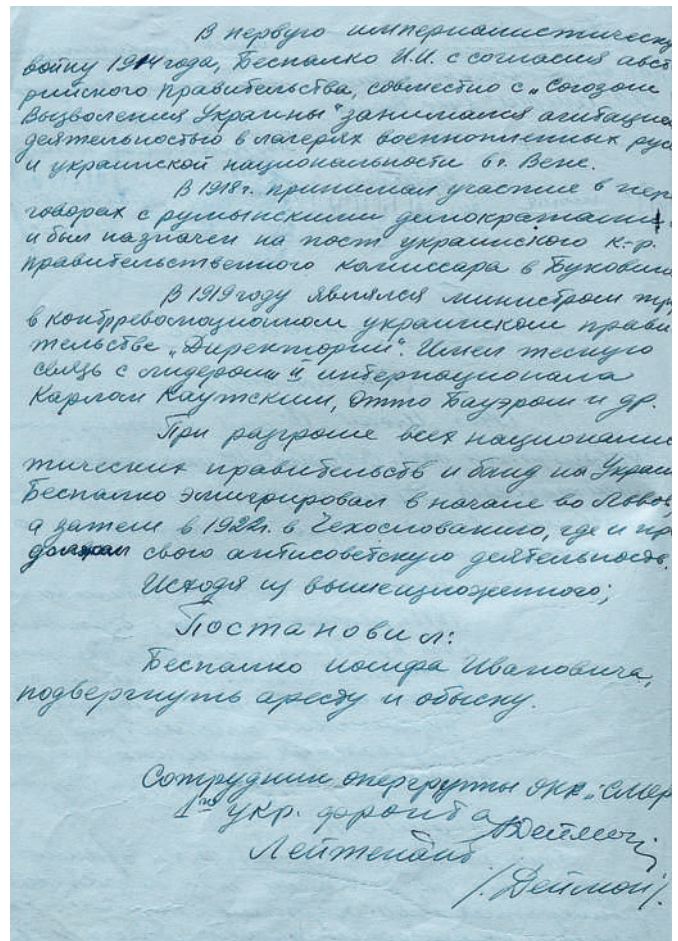 В первую империалистическу
войну 1914 года, Беспалко И.И. с согласия авст
рийского правительства, совместно с „Союзом
Вызволения Украины" занимался агитацион
деятельностью в лагерях военнопленных рус
и украинской национальности в г. Вене.
В 1918 г. принимал участие в пере
говорах с румынскими демократами
и был назначен на пост украинского к-р.
правительственного комиссара в Буковин
В 1919 году являлся министром тру
в контрреволюционном украинском прави
тельстве „Директории". Имел тесную
связь с лидерами II интернационала
Карлом Каутским, Отто Бауэром и др.
При разгроме всех националис
тических правительств и банд на Украи
Беспалко эмигрировал в начале во Львов,
а затем в 1922 г. в Чехословакию, где и про
должал свою антисоветскую деятельность.
Исходя из вышеизложенного;
Постановил:
Беспалко Иосифа Ивановича,
подвергнуть аресту и обыску.
Сотрудник опергруппы ОКР „Смер
1го укр. фронта
Лейтенант
/Деймон/.